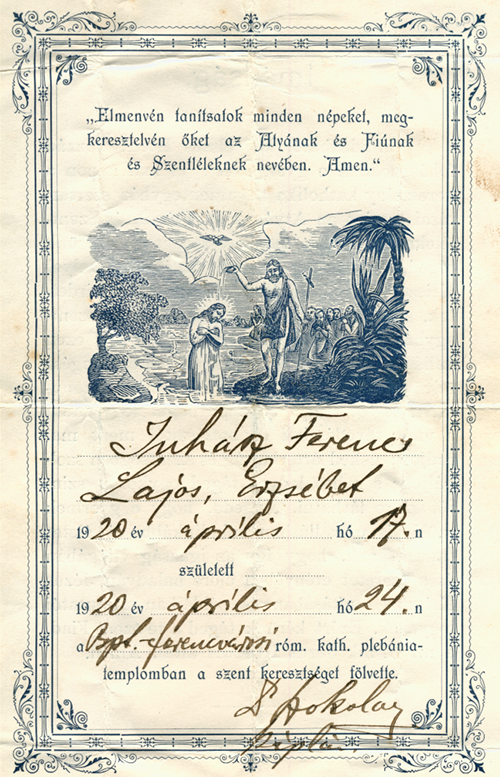 „Elmenvén tanítsatok minden népeket, meg-
keresztelvén őket az Atyának és Fiúnak
és Szentléleknek nevében. Amen.“
Juhász Ferenc
Lajos, Erzsébet
1920 év április hó 17. n
született
1920 év április hó 24. n
a Bpt.-ferencvárosi róm. kath. plebánia-
templomban a szent keresztséget fölvette.
káplán